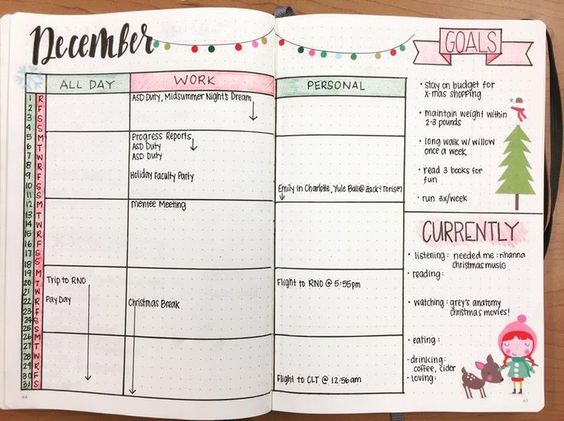 December
GOALS
ALL DAY
WORK
PERSONAL
1 R
2 F
3 S
4 S
5 M
6 T
7 W
8 R
9 F
10 S
11 S
12 M
13 T
14 W
15 R
16 F
17 S
18 S
19 M
20 T
21 W
22 R
23 F
24 S
25 S
26 M
27 T
28 W
29 R
30 F
31 S
Trip to RNO
Pay Day
ASD Duty, Midsummer Night's Dream
Progress Reports
ASD Duty
ASD Duty
Holiday Faculty Party
mentee Meeting
Christmas Break
Emily in Charlotte, Yule Ball @ Zack/
Flight to RNO @ 5:55pm
Flight to CLT @ 12:56am
• stay on budget for
x-mas shopping
• maintain weight within
2-3 pounds
• long walk w/ willow
once a week
• read 3 books for
fun
• run 3x/week
CURRENTLY
• listening: needed me: rihanna
christmas music
• reading:
• watching: grey's anatomy
christmas movies!
• eating:
• drinking:
coffee, cider
• loving: